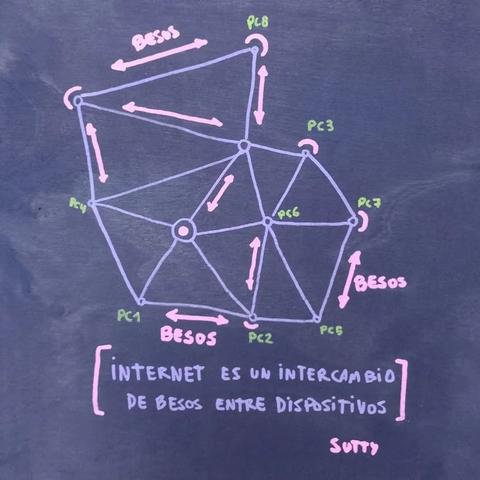 PC8
BESOS
PC3
PC4
PC6
PC7
BESOS
PC1
PC2
PC5
BESOS
[INTERNET ES UN INTERCAMBIO
DE BESOS ENTRE DISPOSITIVOS]
SUTTY